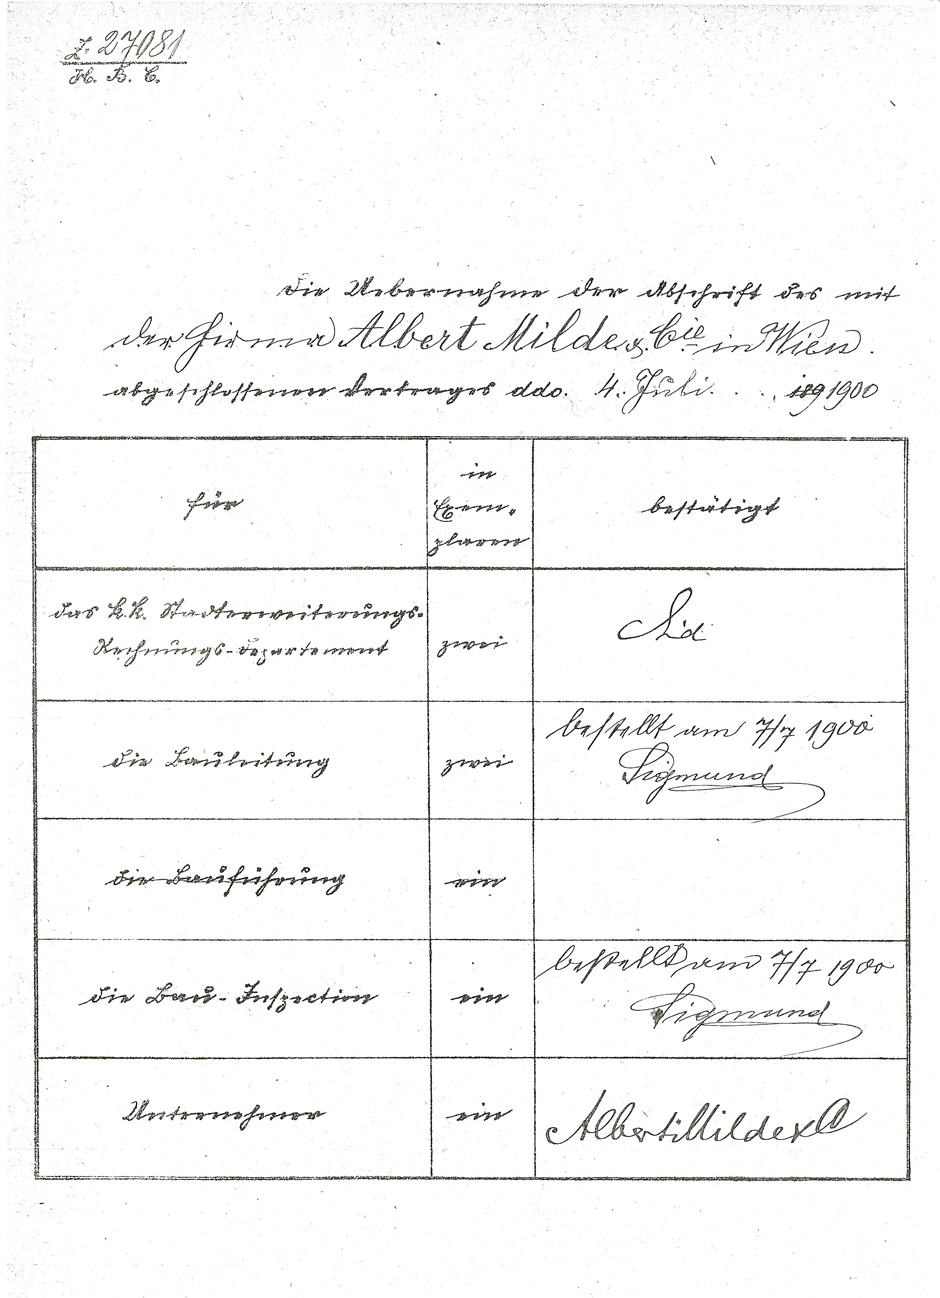 Z. 27081
H. B. C.
Die Uebernahme der Abschrift des mit
der Firma Albert Milde & Cie in Wien.
abgeschlossenen Vertrages ddo. 4. Juli . . . 189 1900
für
in
Exem-
plaren
bestätigt
das k.k. Stadterweiterungs-
Rechnungs-Departement
zwei
die Bauleitung
zwei
bestellt am 7/7 1900
Sigmund
die Bauführung
ein
die Bau-Inspection
ein
bestellt am 7/7 1900
Sigmund
Unternehmer
ein
Albert Milde & Co